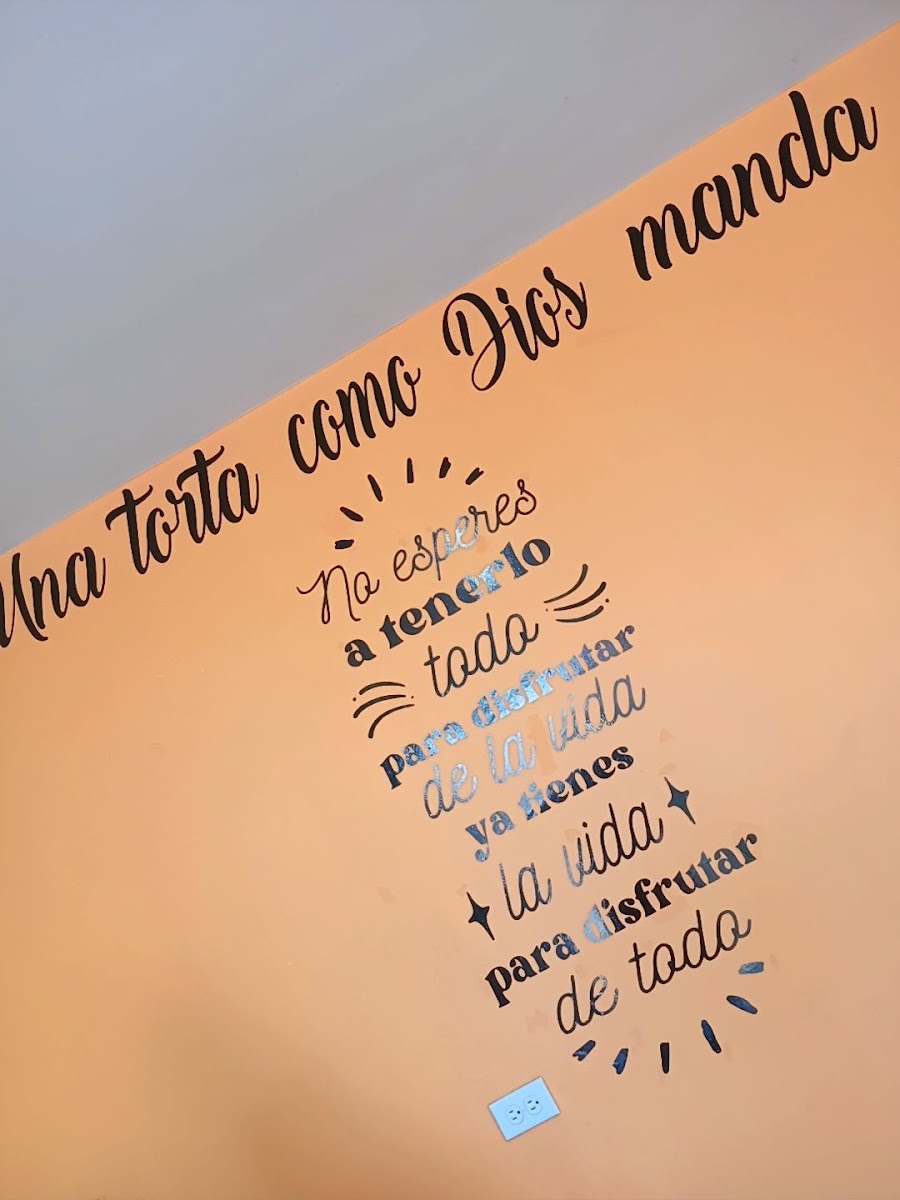 Una torta como Dios manda
No esperes
a tenerlo
todo
para disfrutar
de la vida
ya tienes
la vida
para disfrutar
de todo